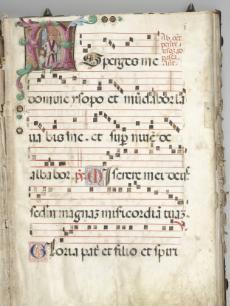 Asperges me
domine ysopo et mūdabor la
ua bis me. et sup niue de
alba bor. ps. Miserere mei deꝰ
sedm magnaz misericordiā tuaz.
Gloria patĩ et filio et spiri